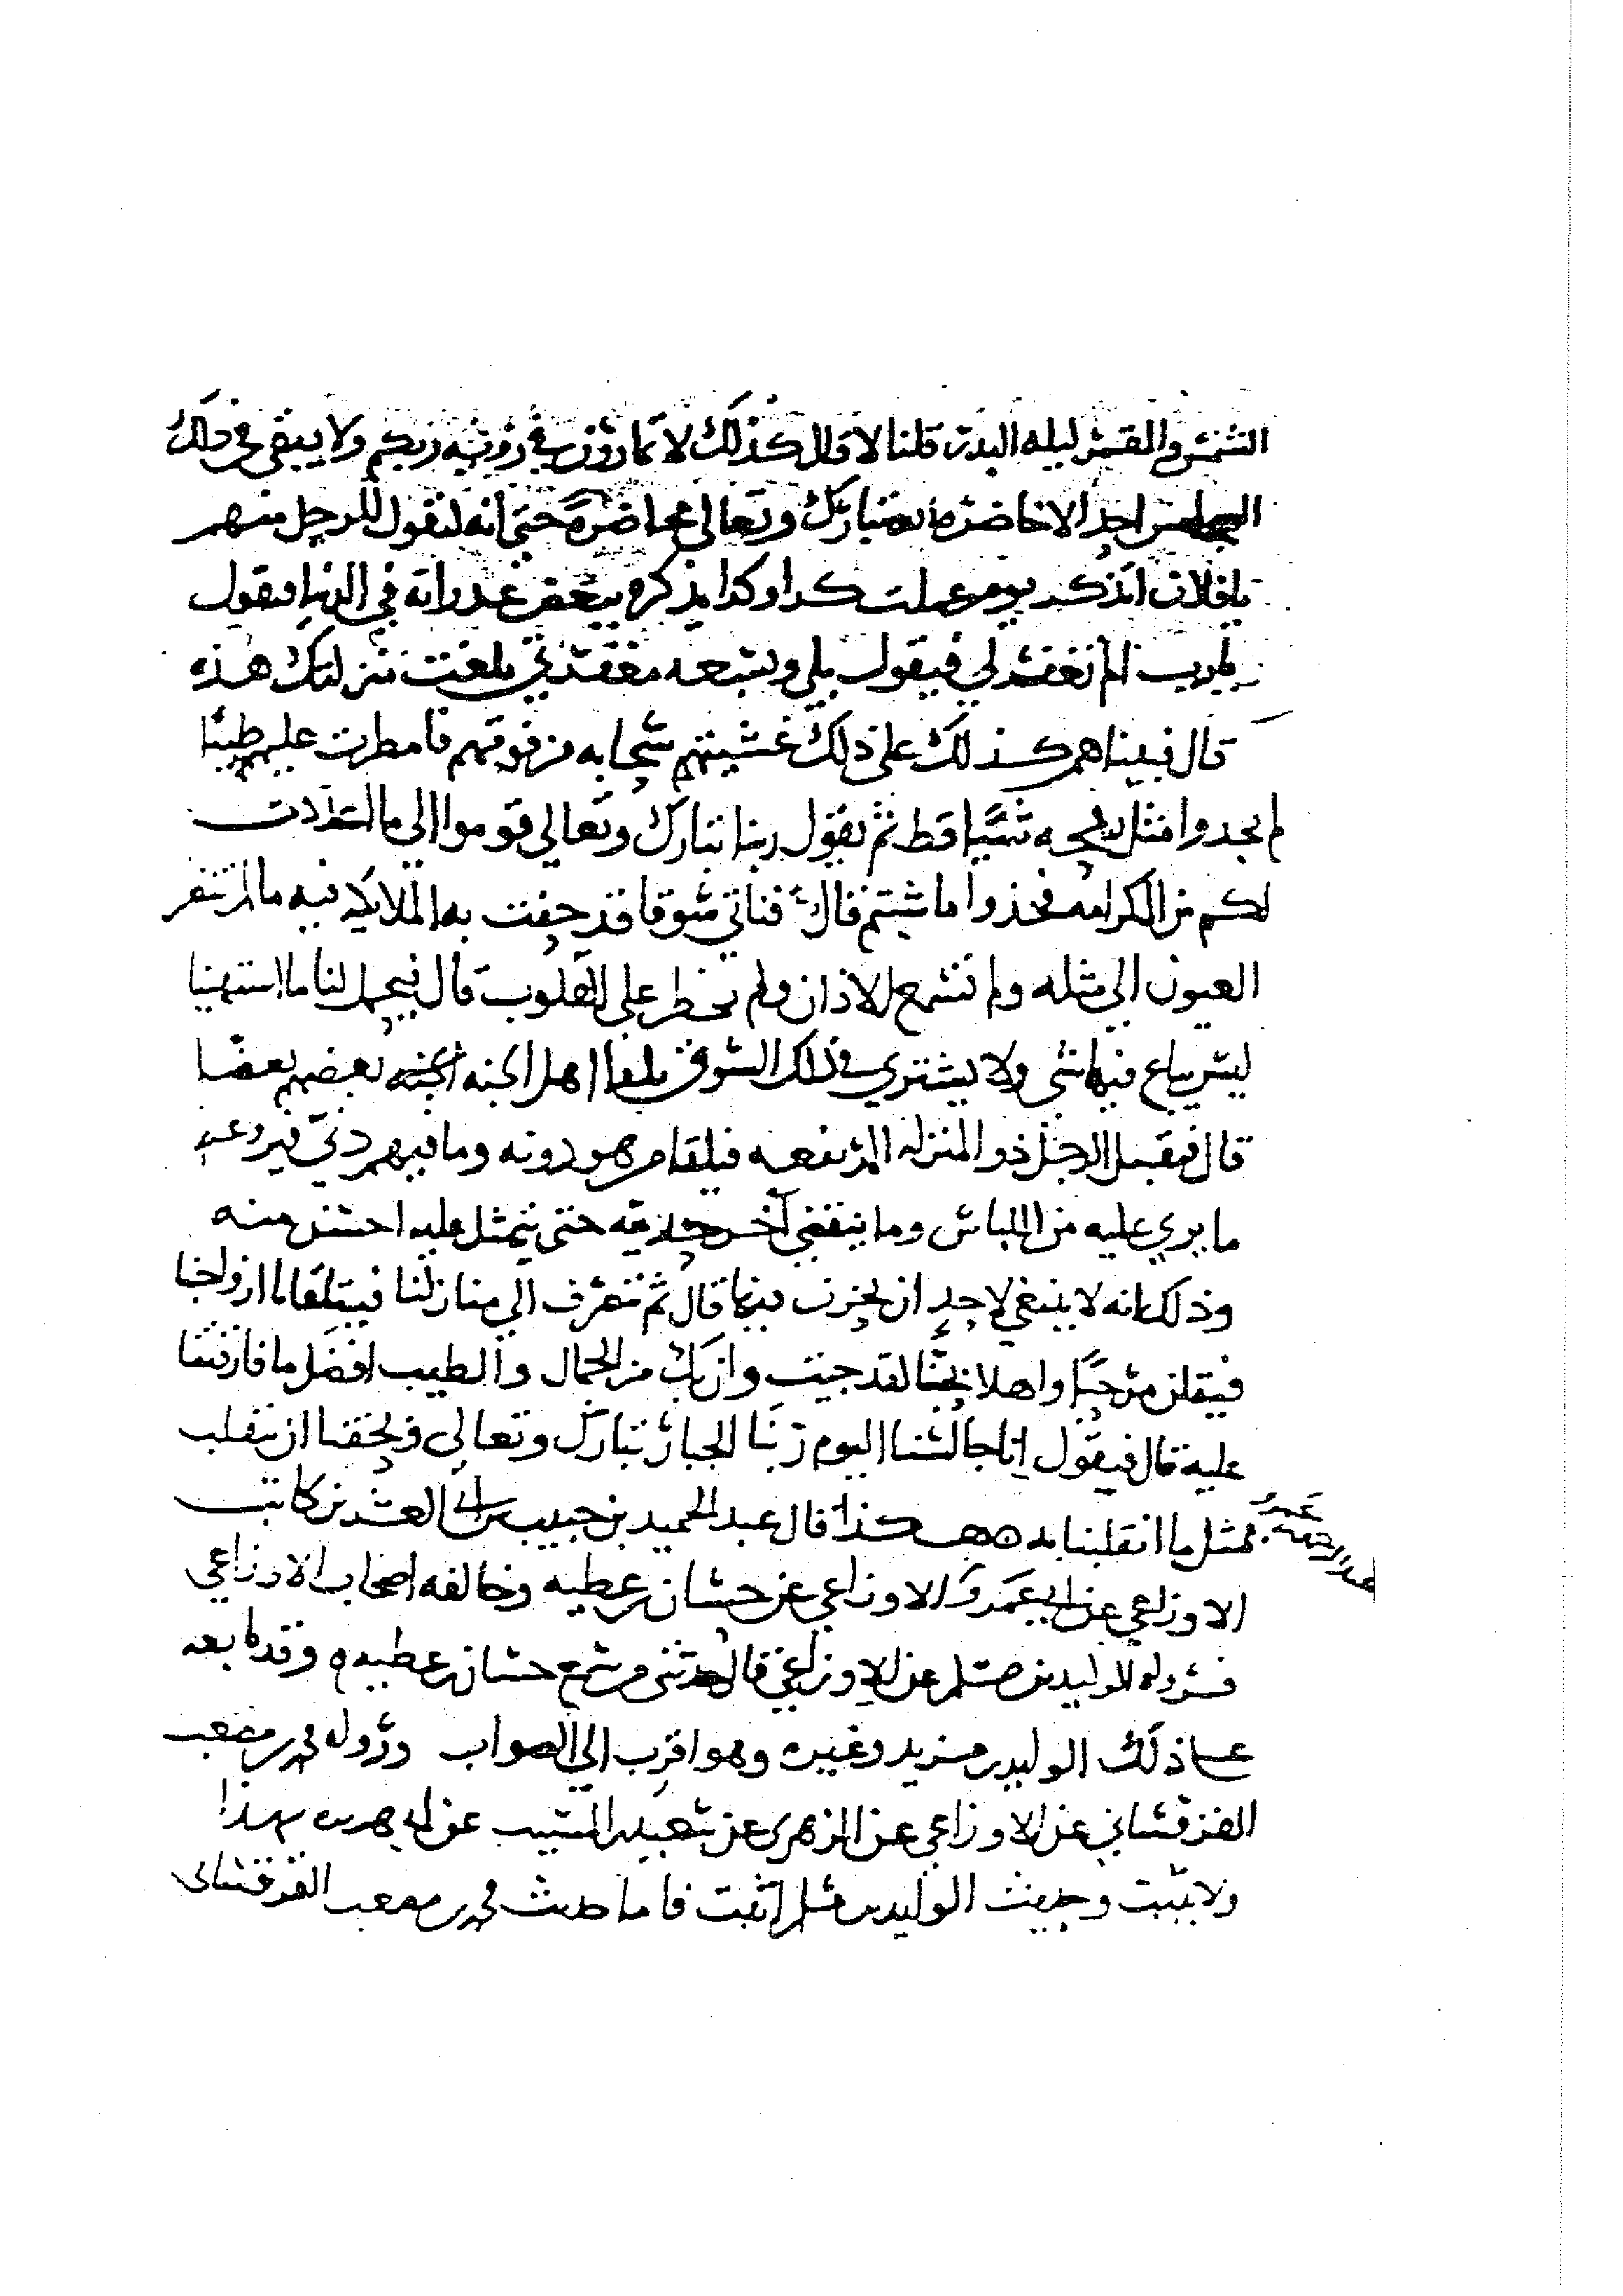 الشمس والقمر ليله البدر قلنا لا قال كذلك لا تمارون في رويه ربكم ولا يبقى في ذلك
المجلس احد الا حاضره الله تبارك وتعالى محاضرة حتى انه ليقول للرجل منهم
يا فلان اتذكر يوم عملت كذا وكذا يذكره ببعض غدراته في الدنيا فيقول
يا رب الم تغفر لي فيقول بلى وبسعه مغفرتي بلغت منزلتك هذه
قال فبينا هم كذلك على ذلك غشيتهم سحابه من فوقهم فامطرت عليهم طيبا
لم يجدوا مثل ريحه شيا قط ثم يقول ربنا تبارك وتعالى قوموا الى ما اعددت
لكم من الكرامه فخذوا ما شيتم قال فناتي سوقا قد حفت به الملايكه فيه ما لم تنظر
العيون الى مثله ولم تسمع الاذان ولم يخطر على القلوب قال فيحمل لنا ما اشتهينا
ليس يباع فيها شي ولا يشترى في ذلك السوق يلقا اهل الجنه بعضهم بعضا
قال فيقبل الرجل ذو المنزله المرتفعه فيلقا من هو دونه وما فيهم دني فيروعه
ما يرى عليه من اللباس وما ينقضي اخر حديثه حتى يتمثل عليه احسن منه
وذلك انه لا ينبغي لاحد ان يحزن فيها قال ثم ننصرف الى منازلنا فيتلقانا ازواجنا
فيقلن مرحبا واهلا بحبنا لقد جيت وان بك من الجمال والطيب افضل ما فارقتنا
عليه قال فيقول انا جالسنا اليوم ربنا الجبار تبارك وتعالى ويحقنا ان ننقلب
بمثل ما انقلبنا به ه هكذا قال عبد الحميد بن حبيب بن ابي العشرين كاتب
الاوزاعي عن ابي عمرو الاوزاعي عن حسان بن عطيه وخالفه اصحاب الاوزاعي
فرواه الوليد بن مسلم عن الاوزاعي قال حدثني من سمع حسان بن عطيه ه وقد تابعه
على ذلك الوليد بن مزيد وغيره وهو اقرب الى الصواب ورواه محمد بن مصعب
القرقساني عن الاوزاعي عن الزهري عن سعيد بن المسيب عن ابي هريره بهذا
ولا يثبت وحديث الوليد بن مسلم اثبت فاما حديث محمد بن مصعب القرقساني